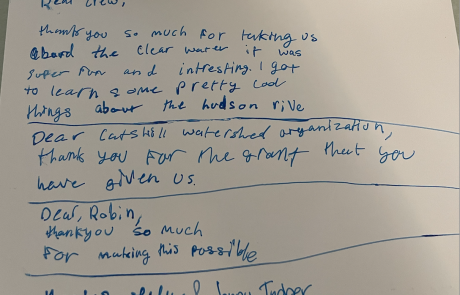 Dear Crew,
thank you so much for taking us
abord the clear water it was
super fun and intresting. I got
to learn some pretty cool
things about the hudson rive
Dear Catskill watershed organization,
thank you for the grant that you
have given us.
Dear, Robin,
thankyou so much
for making this possible